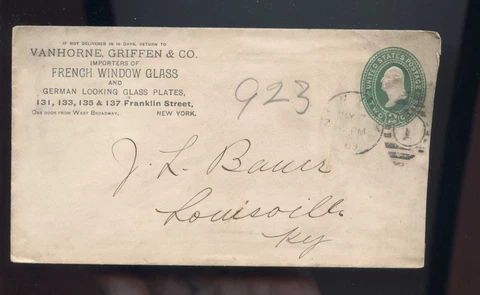 IF NOT DELIVERED IN 10 DAYS, RETURN TO
VANHORNE, GRIFFEN & CO.
IMPORTERS OF
FRENCH WINDOW GLASS
AND
GERMAN LOOKING GLASS PLATES,
131, 133, 135 & 137 Franklin Street,
ONE DOOR FROM WEST BROADWAY, NEW YORK.
923
UNITED STATES POSTAGE
J. L. Bauer
Louisville.
Ky